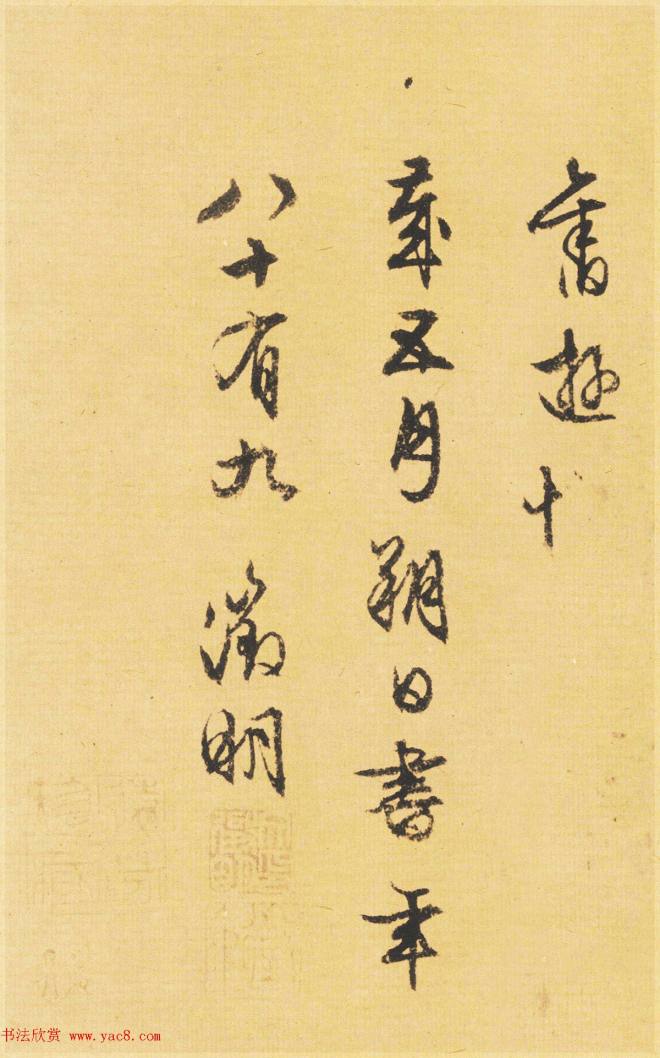 舊遊十
歲五月朔日書年
八十有九 徵明
书法欣赏 www.yac8.com